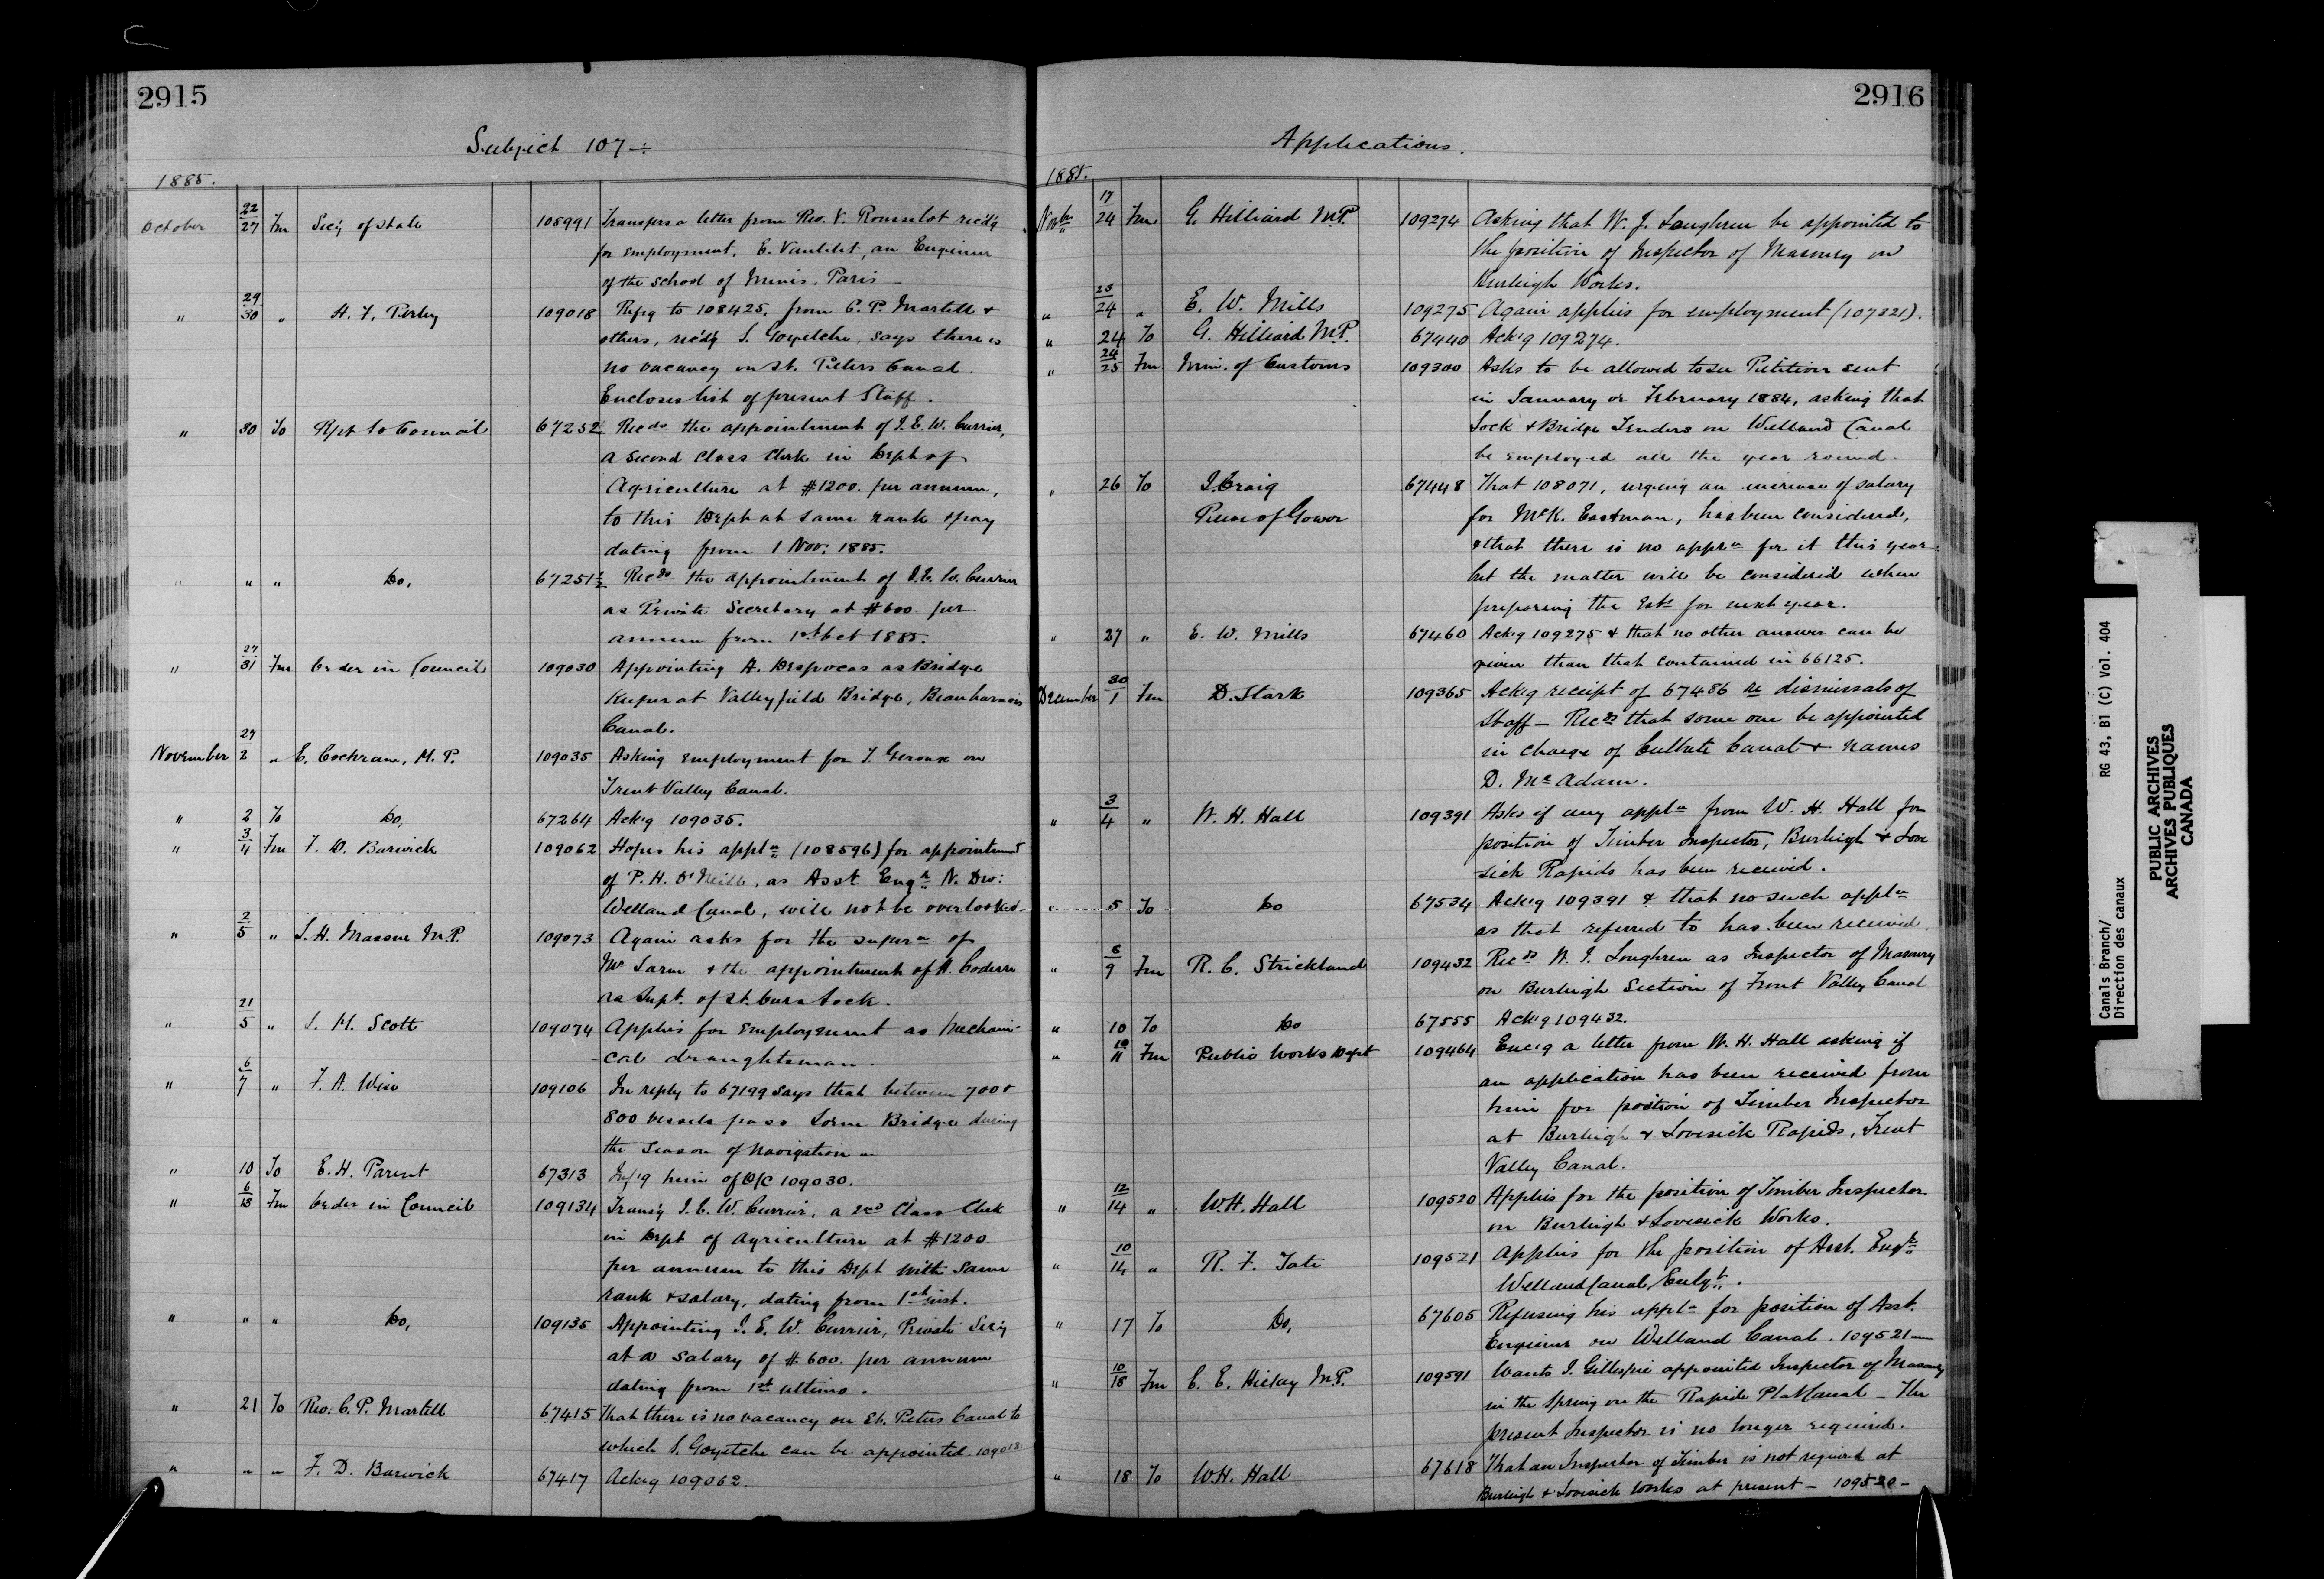 2915
Subject 107 -
1885.
October 22/27 Fm Sec'y of State 108991 Transfers a letter from Rev. V. Rousselot recd'g
for employment, E. Vantelet, an Engineer
of the School of Mines, Paris -
" 29/30 " H. F. Perley 109018 Refg to 108425, from C. P. Martell &
others, recd'g S. Goyetche, says there is
no vacancy on St. Peters Canal.
Encloses list of present Staff.
" 30 To Rpt to Council 67252 Recds the appointment of J. E. W. Currier,
a Second Class Clerk in Dept of
Agriculture at $1200. per annum,
to this Dept at same rank & pay
dating from 1 Nov. 1885.
" " " Do, 67251½ Recds the appointment of J. E. W. Currier
as Private Secretary at $600 per
annum from 1st Oct 1885.
" 27/31 Fm Order in Council 109030 Appointing A. Despocas as Bridge
Keeper at Valleyfield Bridge, Beauharnois
Canal.
November 29/2 " E. Cochrane, M.P. 109035 Asking employment for T. Geroux on
Trent Valley Canal.
" 2 To Do, 67264 Ackg 109035.
" 3/4 Fm F. D. Barwick 109062 Hopes his appln (108596) for appointment
of P. H. O'Neill, as Asst Engr N. Div:
Welland Canal, will not be overlooked.
" 2/5 " L. H. Massue M.P. 109073 Again asks for the supern of
Mr Larue & the appointment of A. Coderre
as Supt. of St. Ours Lock.
" 21/5 " J. H. Scott 109074 Applies for employment as Mechani-
-cal draughtsman.
" 6/7 " F. A. Wise 109106 In reply to 67199 says that between 700 &
800 vessels pass Lorne Bridge during
the Season of navigation -
" 10 To E. H. Parent 67313 Inf'g him of O/C 109030.
" 6/13 Fm Order in Council 109134 Transf'g J. E. W. Currier, a 2nd Class Clerk
in Dept of Agriculture at $1200.
per annum to this Dept with same
rank & salary, dating from 1st inst.
" " " Do, 109135 Appointing J. E. W. Currier, Private Sec'y
at a salary of $600. per annum
dating from 1st ultimo.
" 21 To Rev. C. P. Martell 67415 That there is no vacancy on St. Peters Canal to
which S. Goyetche can be appointed. 109018
" " " F. D. Barwick 67417 Ackg 109062.
2916
Applications.
1885.
Novbr 17/24 Fm G. Hilliard M.P. 109274 Asking that W. J. Loughren be appointed to
the position of Inspector of Masonry on
Burleigh Works.
" 23/24 " E. W. Mills 109275 Again applies for employment (107321).
" 24 To G. Hilliard M.P. 67440 Ack'g 109274.
" 24/25 Fm Min. of Customs 109300 Asks to be allowed to see Petition sent
in January or February 1884, asking that
Lock & Bridge Tenders on Welland Canal
be employed all the year round.
" 26 To J. Craig 67448 That 108071, urging an increase of salary
Reeve of Gower for McK. Eastman, has been considered,
& that there is no appn for it this year
but the matter will be considered when
preparing the Ests for next year.
" 27 " E. W. Mills 67460 Ackg 109275 & that no other answer can be
given than that contained in 66125.
December 30/1 Fm D. Stark 109365 Ackg receipt of 67486 re dismissals of
Staff - Recds that some one be appointed
in charge of Culbute Canal & names
D. McAdam.
" 3/4 " W. H. Hall 109391 Asks if any appln from W. H. Hall for
position of Timber Inspector, Burleigh & Love
sick Rapids has been received.
" 5 To Do 67534 Ackg 109391 & that no such appln
as that referred to has been received.
" 8/9 Fm R. C. Strickland 109432 Recds W. J. Loughren as Inspector of Masonry
on Burleigh Section of Trent Valley Canal
" 10 To Do 67555 Ack'g 109432.
" 10/11 Fm Public Works Dept 109464 Encl'g a letter from W. H. Hall asking if
an application has been received from
him for position of Timber Inspector
at Burleigh & Lovesick Rapids, Trent
Valley Canal.
" 12/14 " W. H. Hall 109520 Applies for the position of Timber Inspector
on Burleigh & Lovesick Works.
" 10/14 " R. F. Tate 109521 Applies for the position of Asst. Engr
Welland Canal, Enlgt.
" 17 To Do, 67605 Refusing his appln for position of Asst.
Engineer on Welland Canal. 109521 -
" 10/18 Fm C. E. Hickey M.P. 109591 Wants J. Gillespie appointed Inspector of Masonry
in the Spring on the Rapide Plat Canal - The
present Inspector is no longer required.
" 18 To W. H. Hall 67618 That an Inspector of Timber is not required at
Burleigh & Lovesick Works at present - 109520 -
Canals Branch/ RG 43, B1 (C) Vol. 404
Direction des canaux
PUBLIC ARCHIVES
ARCHIVES PUBLIQUES
CANADA